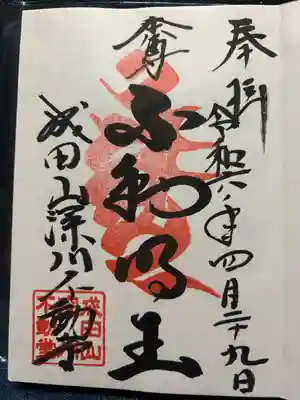 奉拝
令和六年四月二十九日
本尊
不動明王
成田山深川不動堂
成田山
不動堂